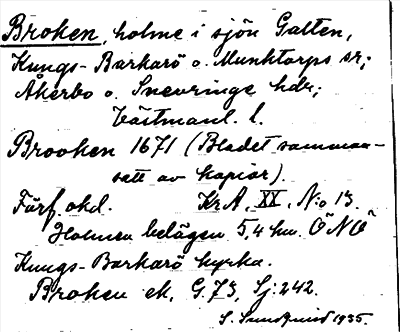 Broken, holme i sjön Galten,
Kungs-Barkarö o. Munktorps sr;
Åkerbo o. Snevringe hdr;
Västmanl. l.
Brooken 1671 (Bladet samman-
satt av kopior).
Förf. okd. KrA, XX, N:o 13.
Holmen belägen 5,4 km. ÖNÖ
Kungs-Barkarö kyrka.
Broken ek, G.73, Sj:242.
S. Sundqvist 1935.